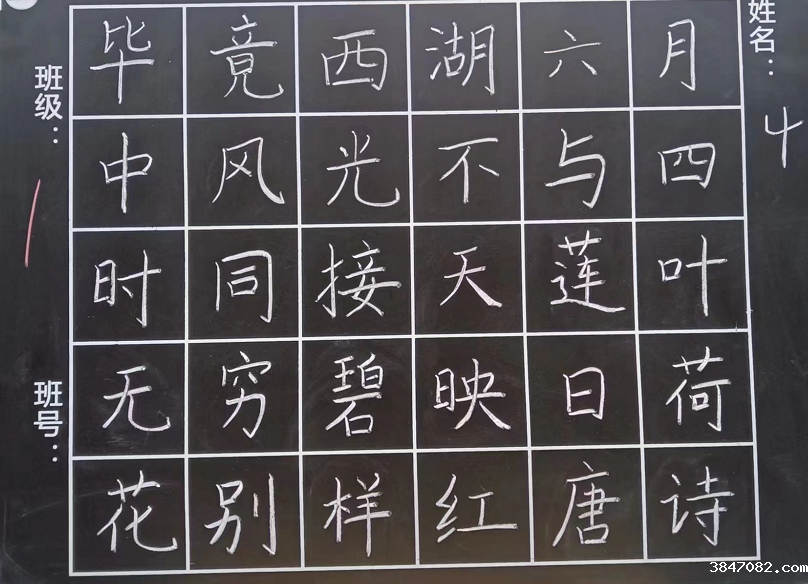 毕竟西湖六月
中风光不与四
时同接天莲叶
无穷碧映日荷
花别样红唐诗
班级：
班号：
姓名：
4
3847082.com